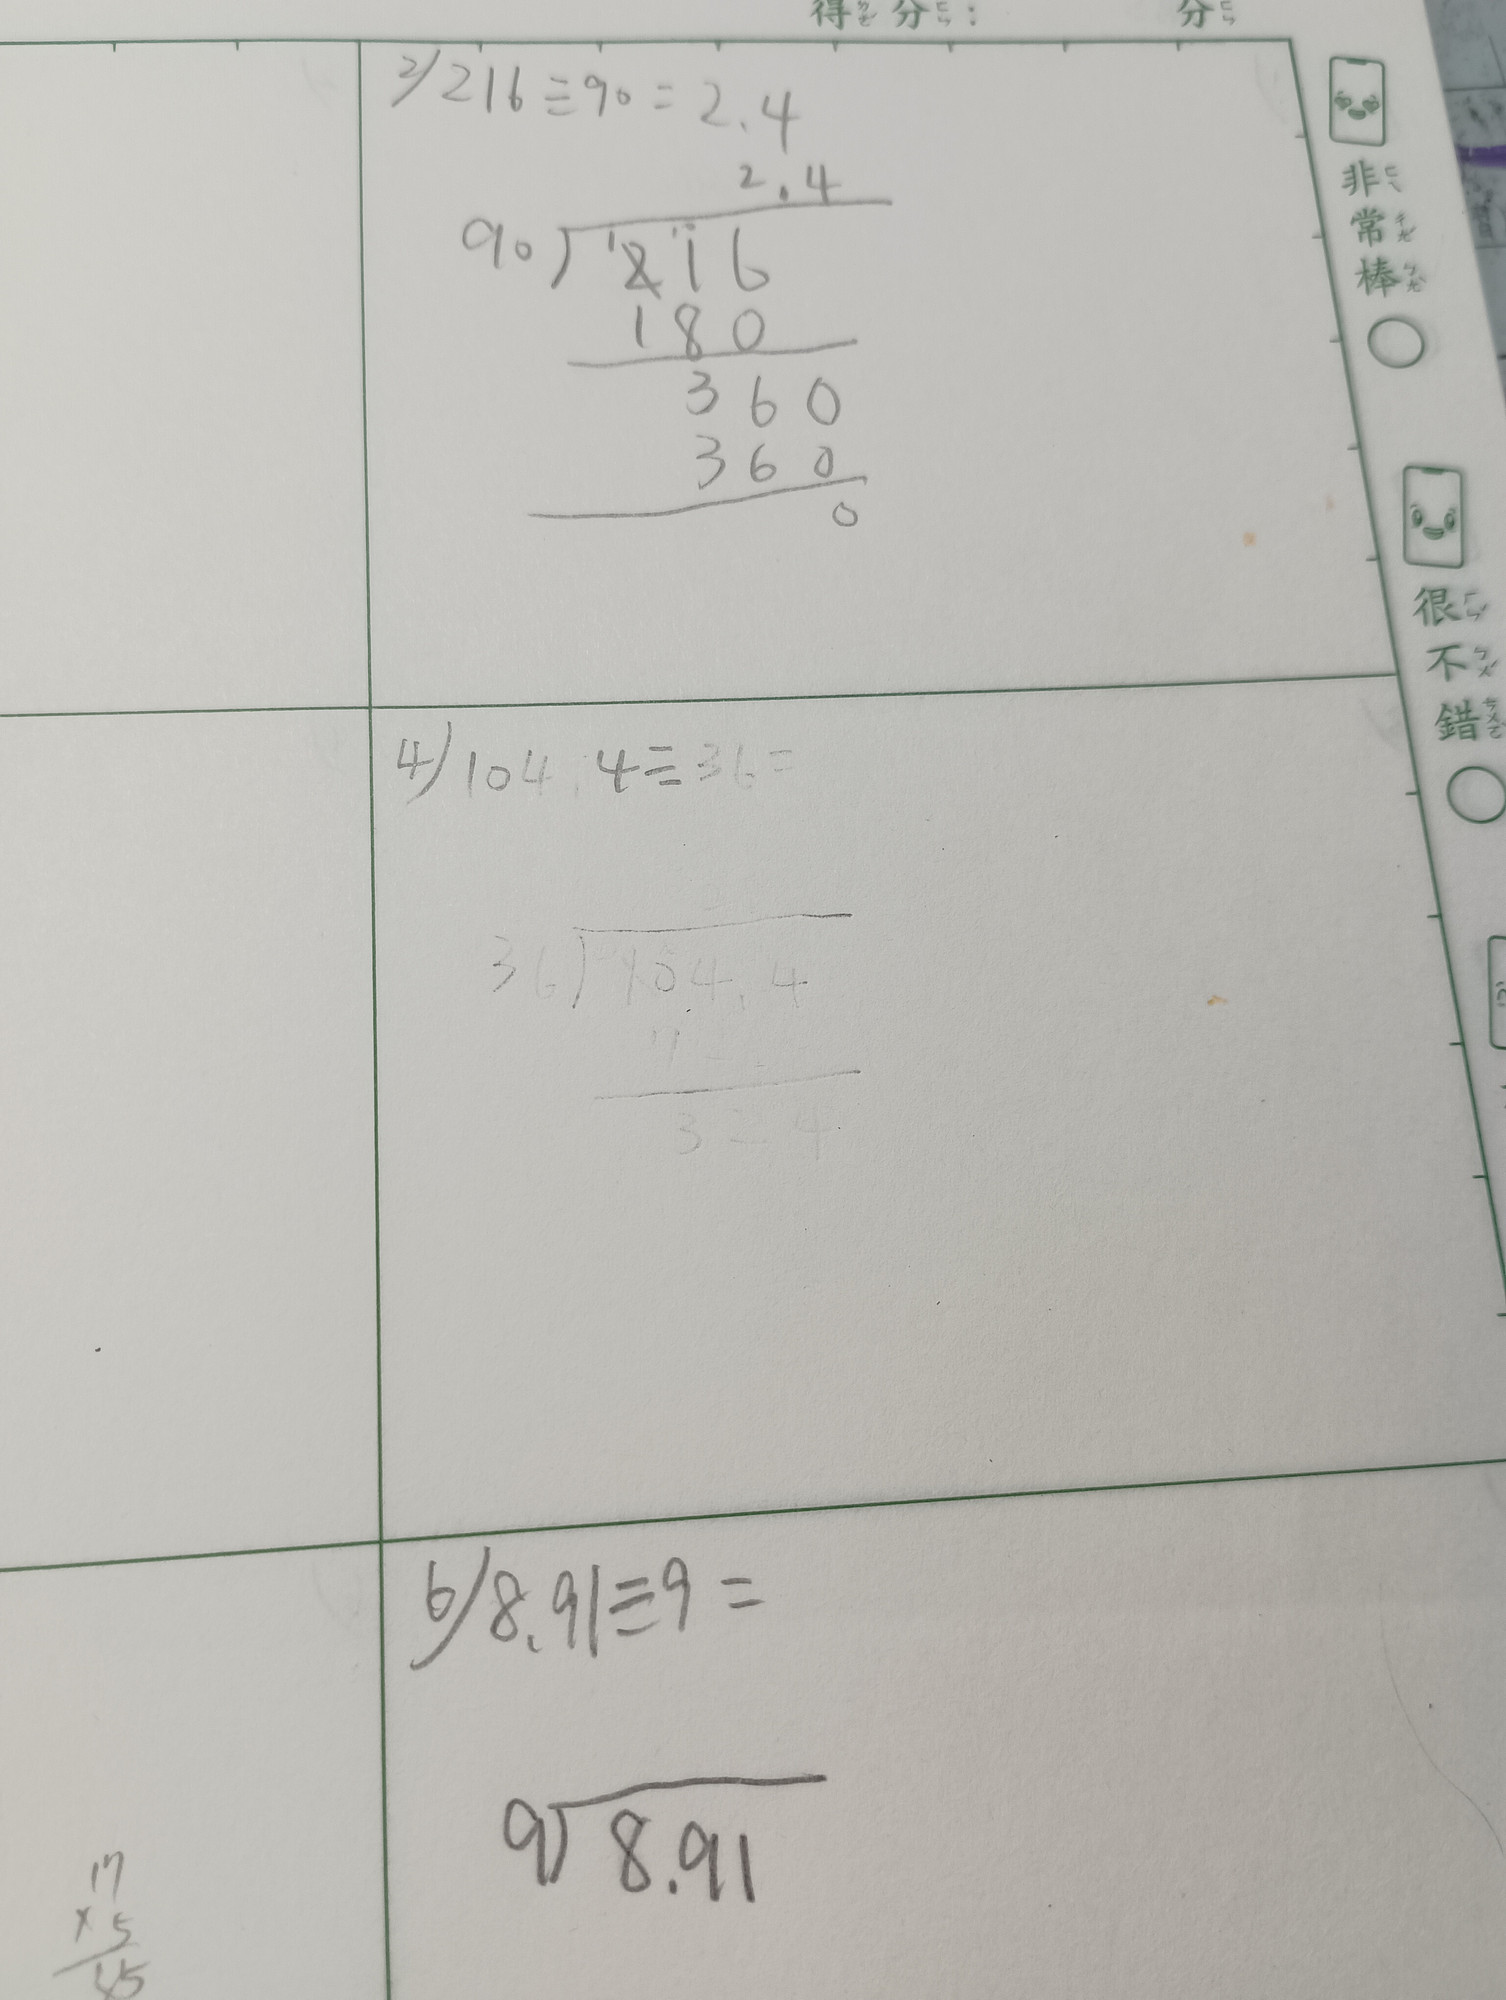 得分： 分
2) 216 ÷ 90 = 2.4
2.4
90) 216
180
360
360
0
4) 104.4 ÷ 36 =
36) 104.4
3 4
6) 8.91 ÷ 9 =
9) 8.91
17
× 5
85
非常棒
很不錯